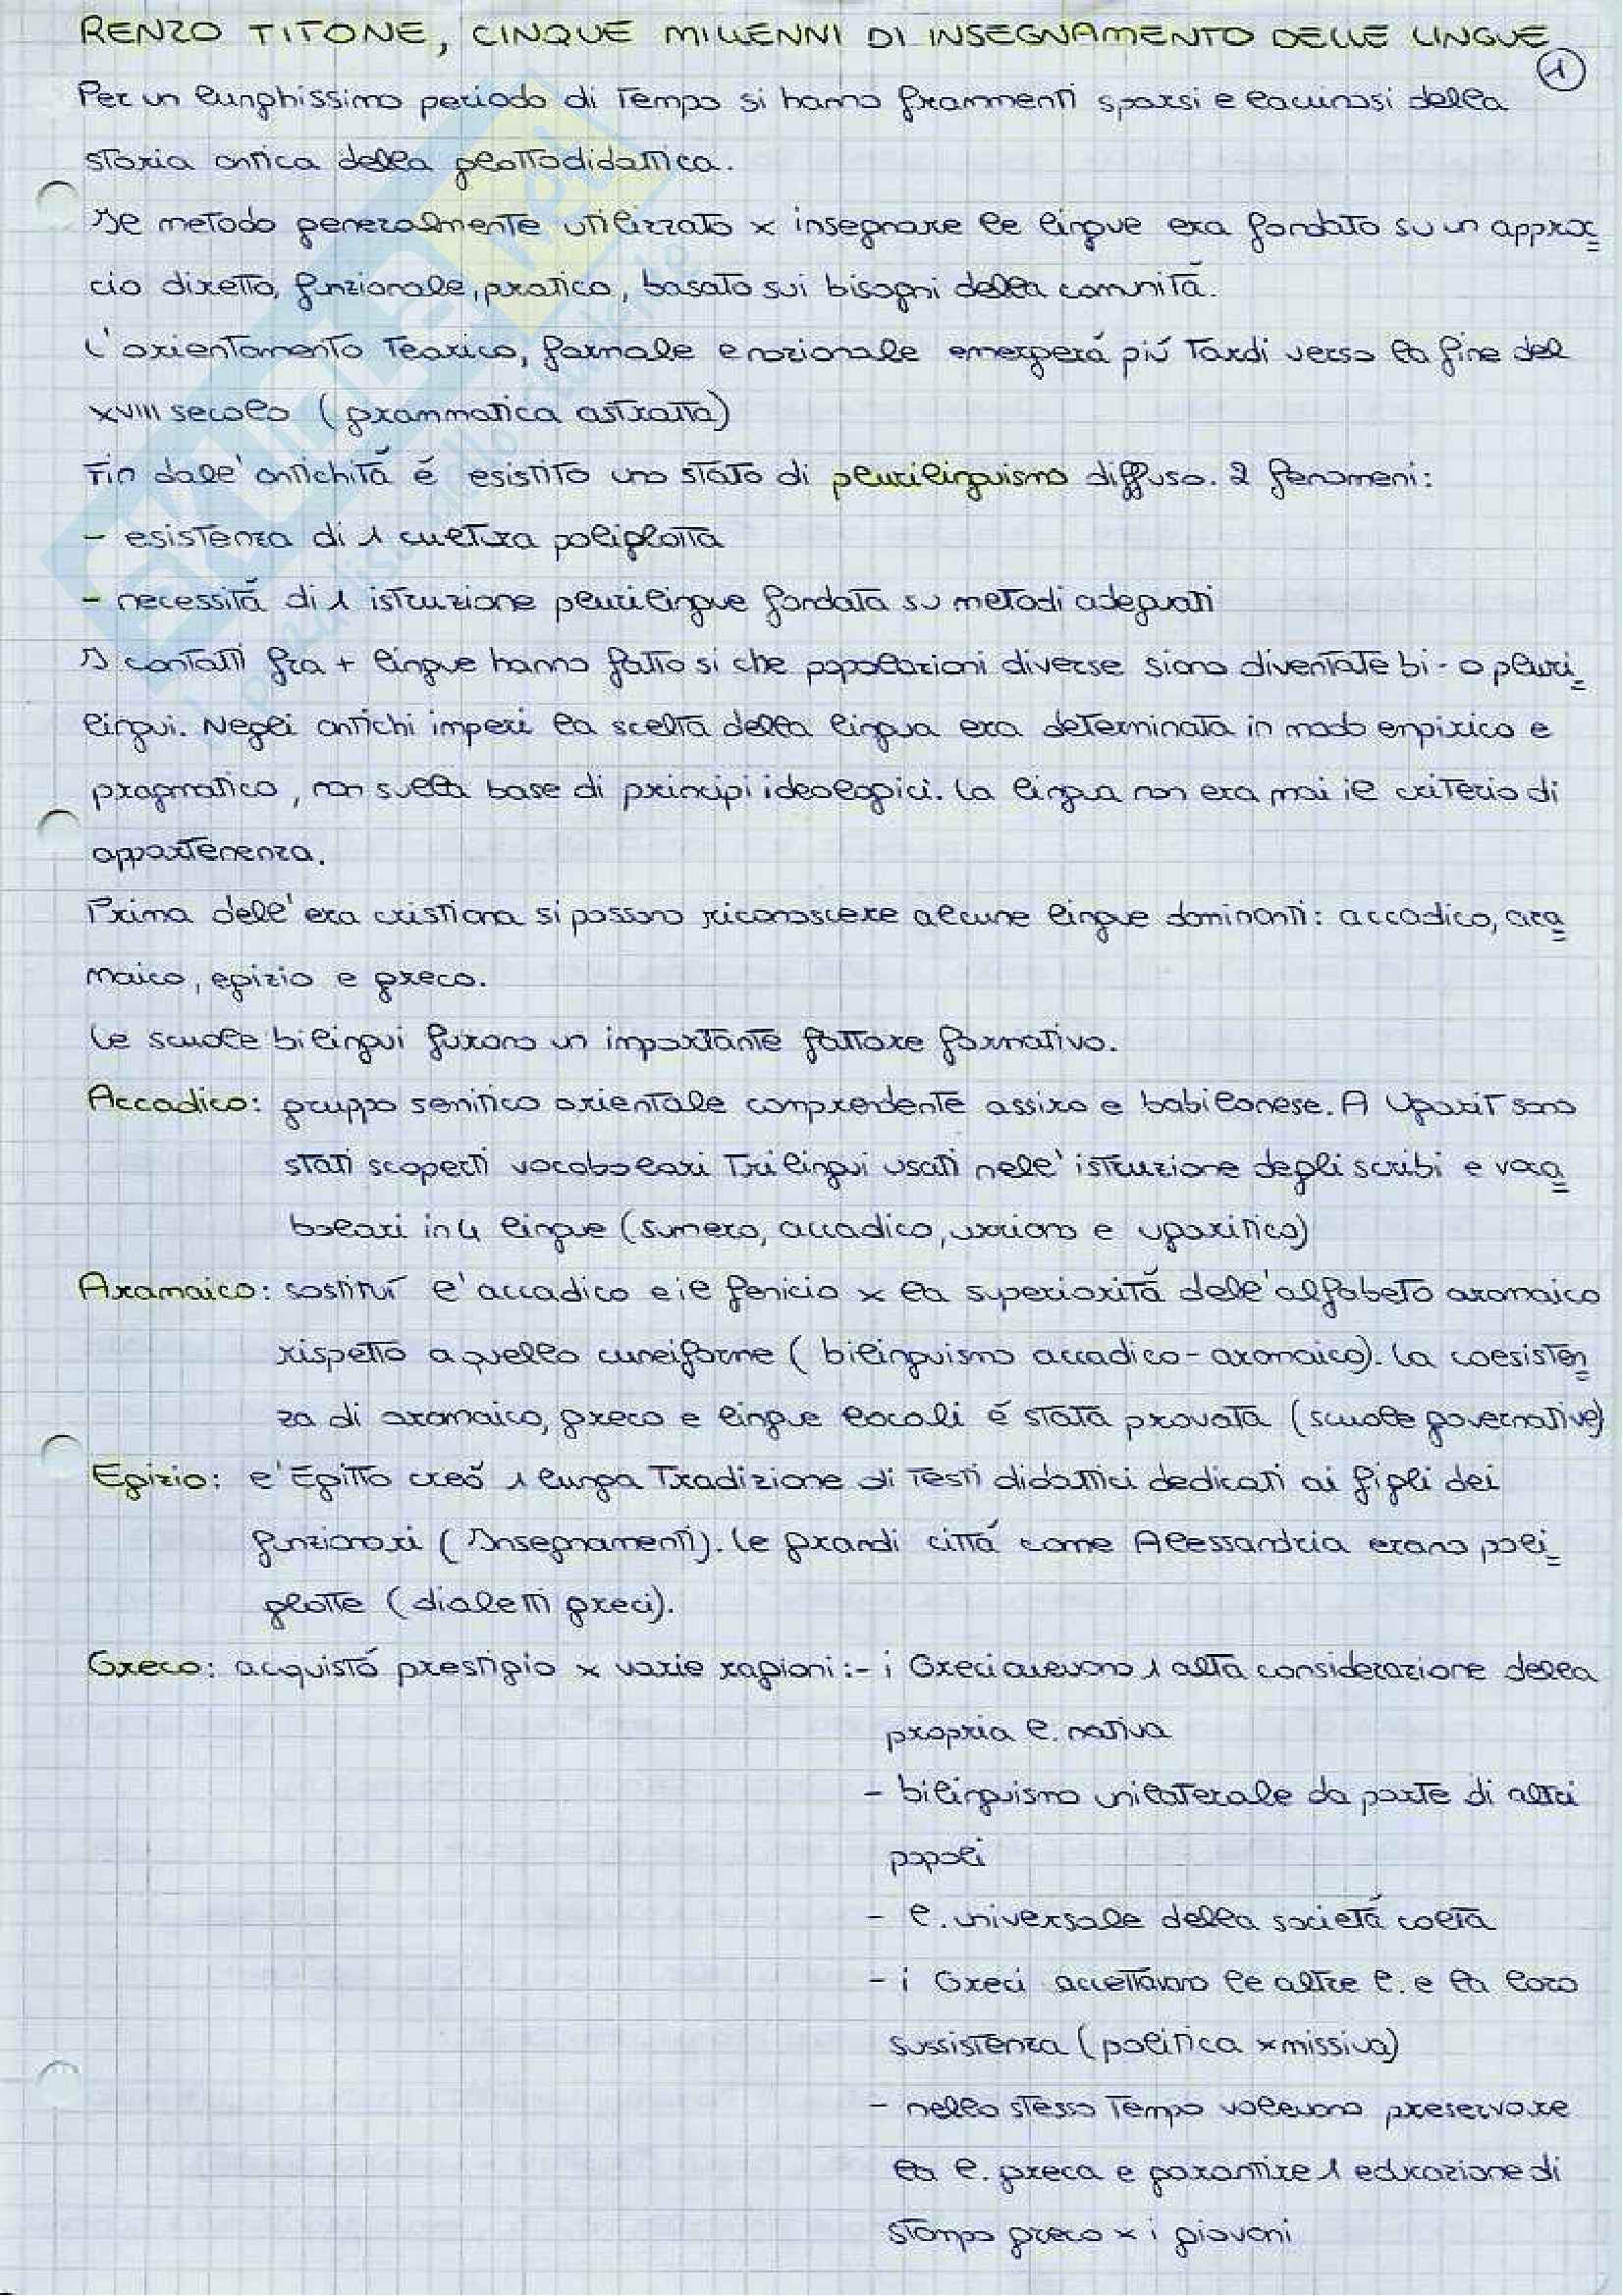 RENZO TITONE, CINQUE MILLENNI DI INSEGNAMENTO DELLE LINGUE
1
Per un lunghissimo periodo di tempo si hanno frammenti sparsi e lacunosi della
storia antica della glottodidattica.
Il metodo generalmente utilizzato x insegnare le lingue era fondato su un approc=
cio diretto, funzionale, pratico, basato sui bisogni della comunità.
L'orientamento teorico, formale e nozionale emergerà più tardi verso la fine del
XVIII secolo (grammatica astratta)
Fin dall'antichità è esistito uno stato di plurilinguismo diffuso. 2 fenomeni:
- esistenza di 1 cultura poliglotta
- necessità di 1 istruzione plurilingue fondata su metodi adeguati
I contatti fra + lingue hanno fatto si che popolazioni diverse siano diventate bi- o pluri=
lingui. Negli antichi imperi la scelta della lingua era determinata in modo empirico e
pragmatico, non sulla base di principi ideologici. La lingua non era mai il criterio di
appartenenza.
Prima dell'era cristiana si possono riconoscere alcune lingue dominanti: accadico, ara=
maico, egizio e greco.
Le scuole bilingui furono un importante fattore formativo.
Accadico: gruppo semitico orientale comprendente assiro e babilonese. A Ugarit sono
stati scoperti vocabolari trilingui usati nell'istruzione degli scribi e voca=
bolari in 4 lingue (sumero, accadico, urriano e ugaritico)
Aramaico: sostituì l'accadico e il fenicio x la superiorità dell'alfabeto aramaico
rispetto a quello cuneiforme (bilinguismo accadico-aramaico). La coesisten=
za di aramaico, greco e lingue locali è stata provata (scuole governative)
Egizio: l'Egitto creò 1 lunga tradizione di testi didattici dedicati ai figli dei
funzionari (Insegnamenti). Le grandi città come Alessandria erano poli=
glotte (dialetti greci).
Greco: acquistò prestigio x varie ragioni: - i Greci avevano 1 alta considerazione della
propria l. nativa
- bilinguismo unilaterale da parte di altri
popoli
- l. universale della società colta
- i Greci accettavano le altre l. e la loro
sussistenza (politica xmissiva)
- nello stesso tempo volevano preservare
la l. greca e garantire 1 educazione di
stampo greco x i giovani